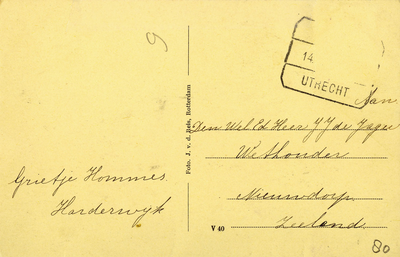 9
14
UTRECHT
Aan
Den Wel Ed Heer J J de Jager
Wethouder
Nieuwdorp
Zeeland
Grietje Hommes
Harderwyk
Foto. J. v. d. Reis, Rotterdam
V 40
80